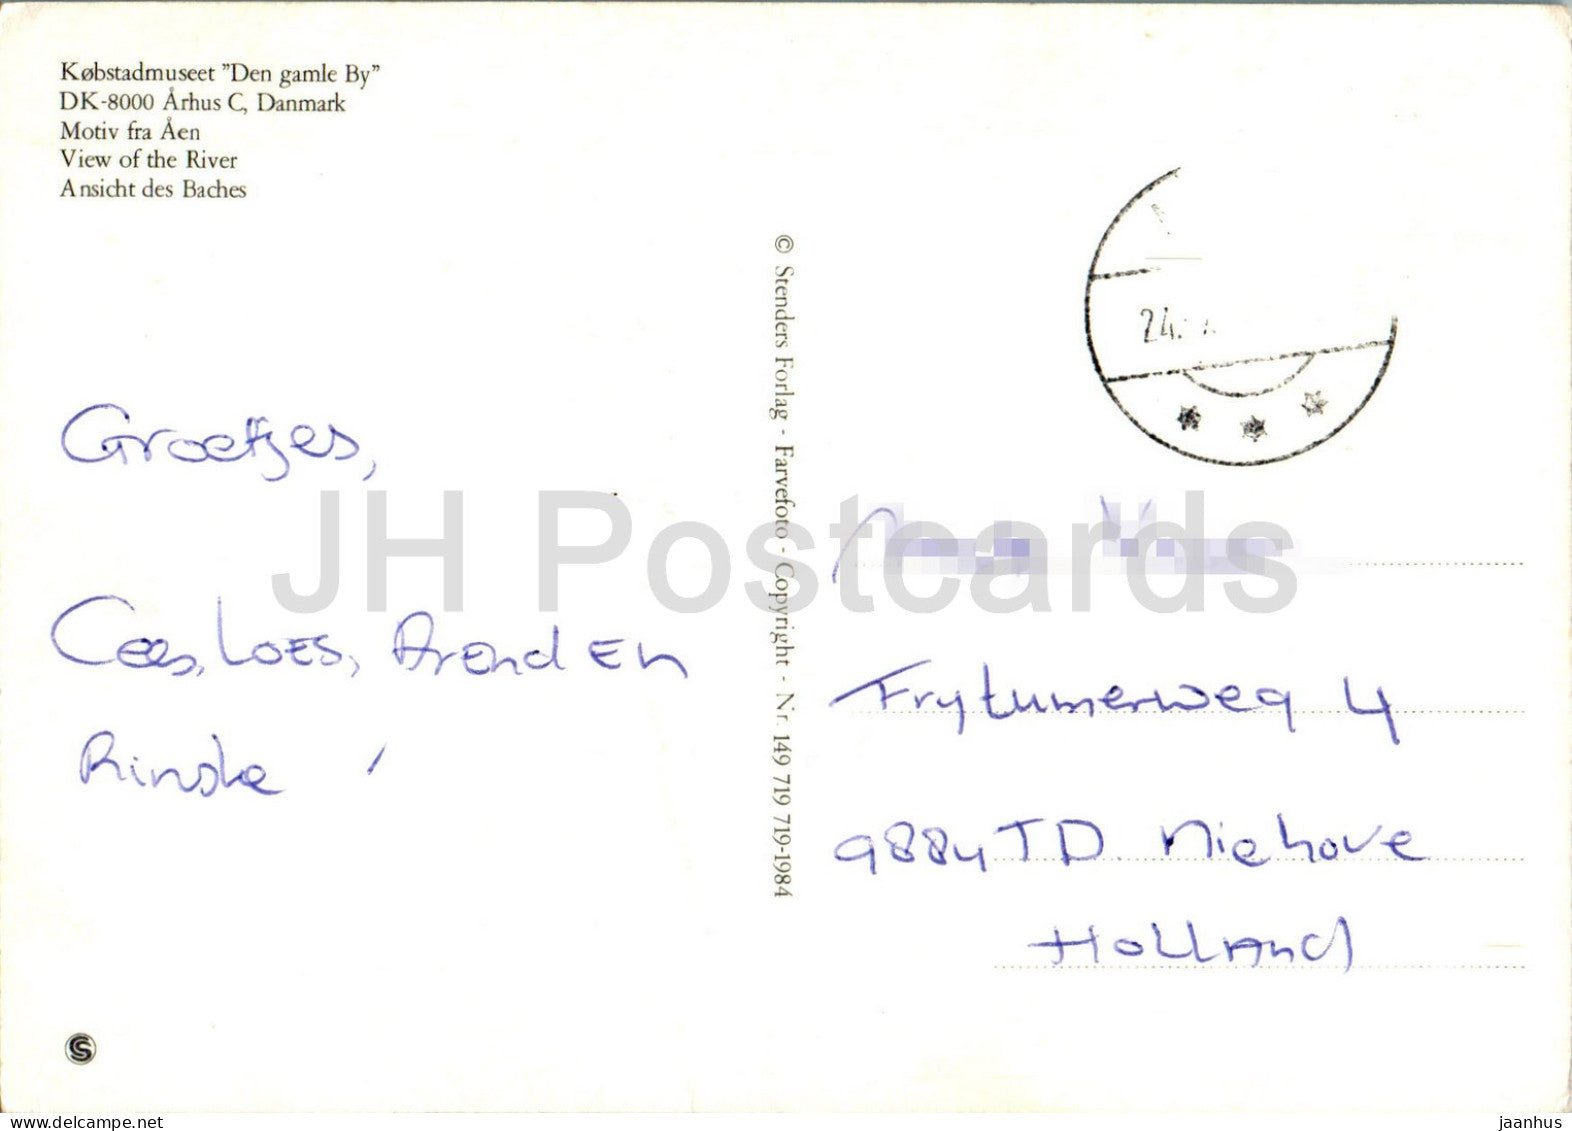 Købstadmuseet "Den gamle By"
DK-8000 Århus C, Danmark
Motiv fra Åen
View of the River
Ansicht des Baches
Groetjes,
Cees, Loes, Arend en
Rinske
© Stenders Forlag - Farvefoto - Copyright - Nr. 149 719 719-1984
24.
Frytumerweg 4
9884 TD Niehove
Holland
JH Postcards
S
www.delcampe.net
jaanhus